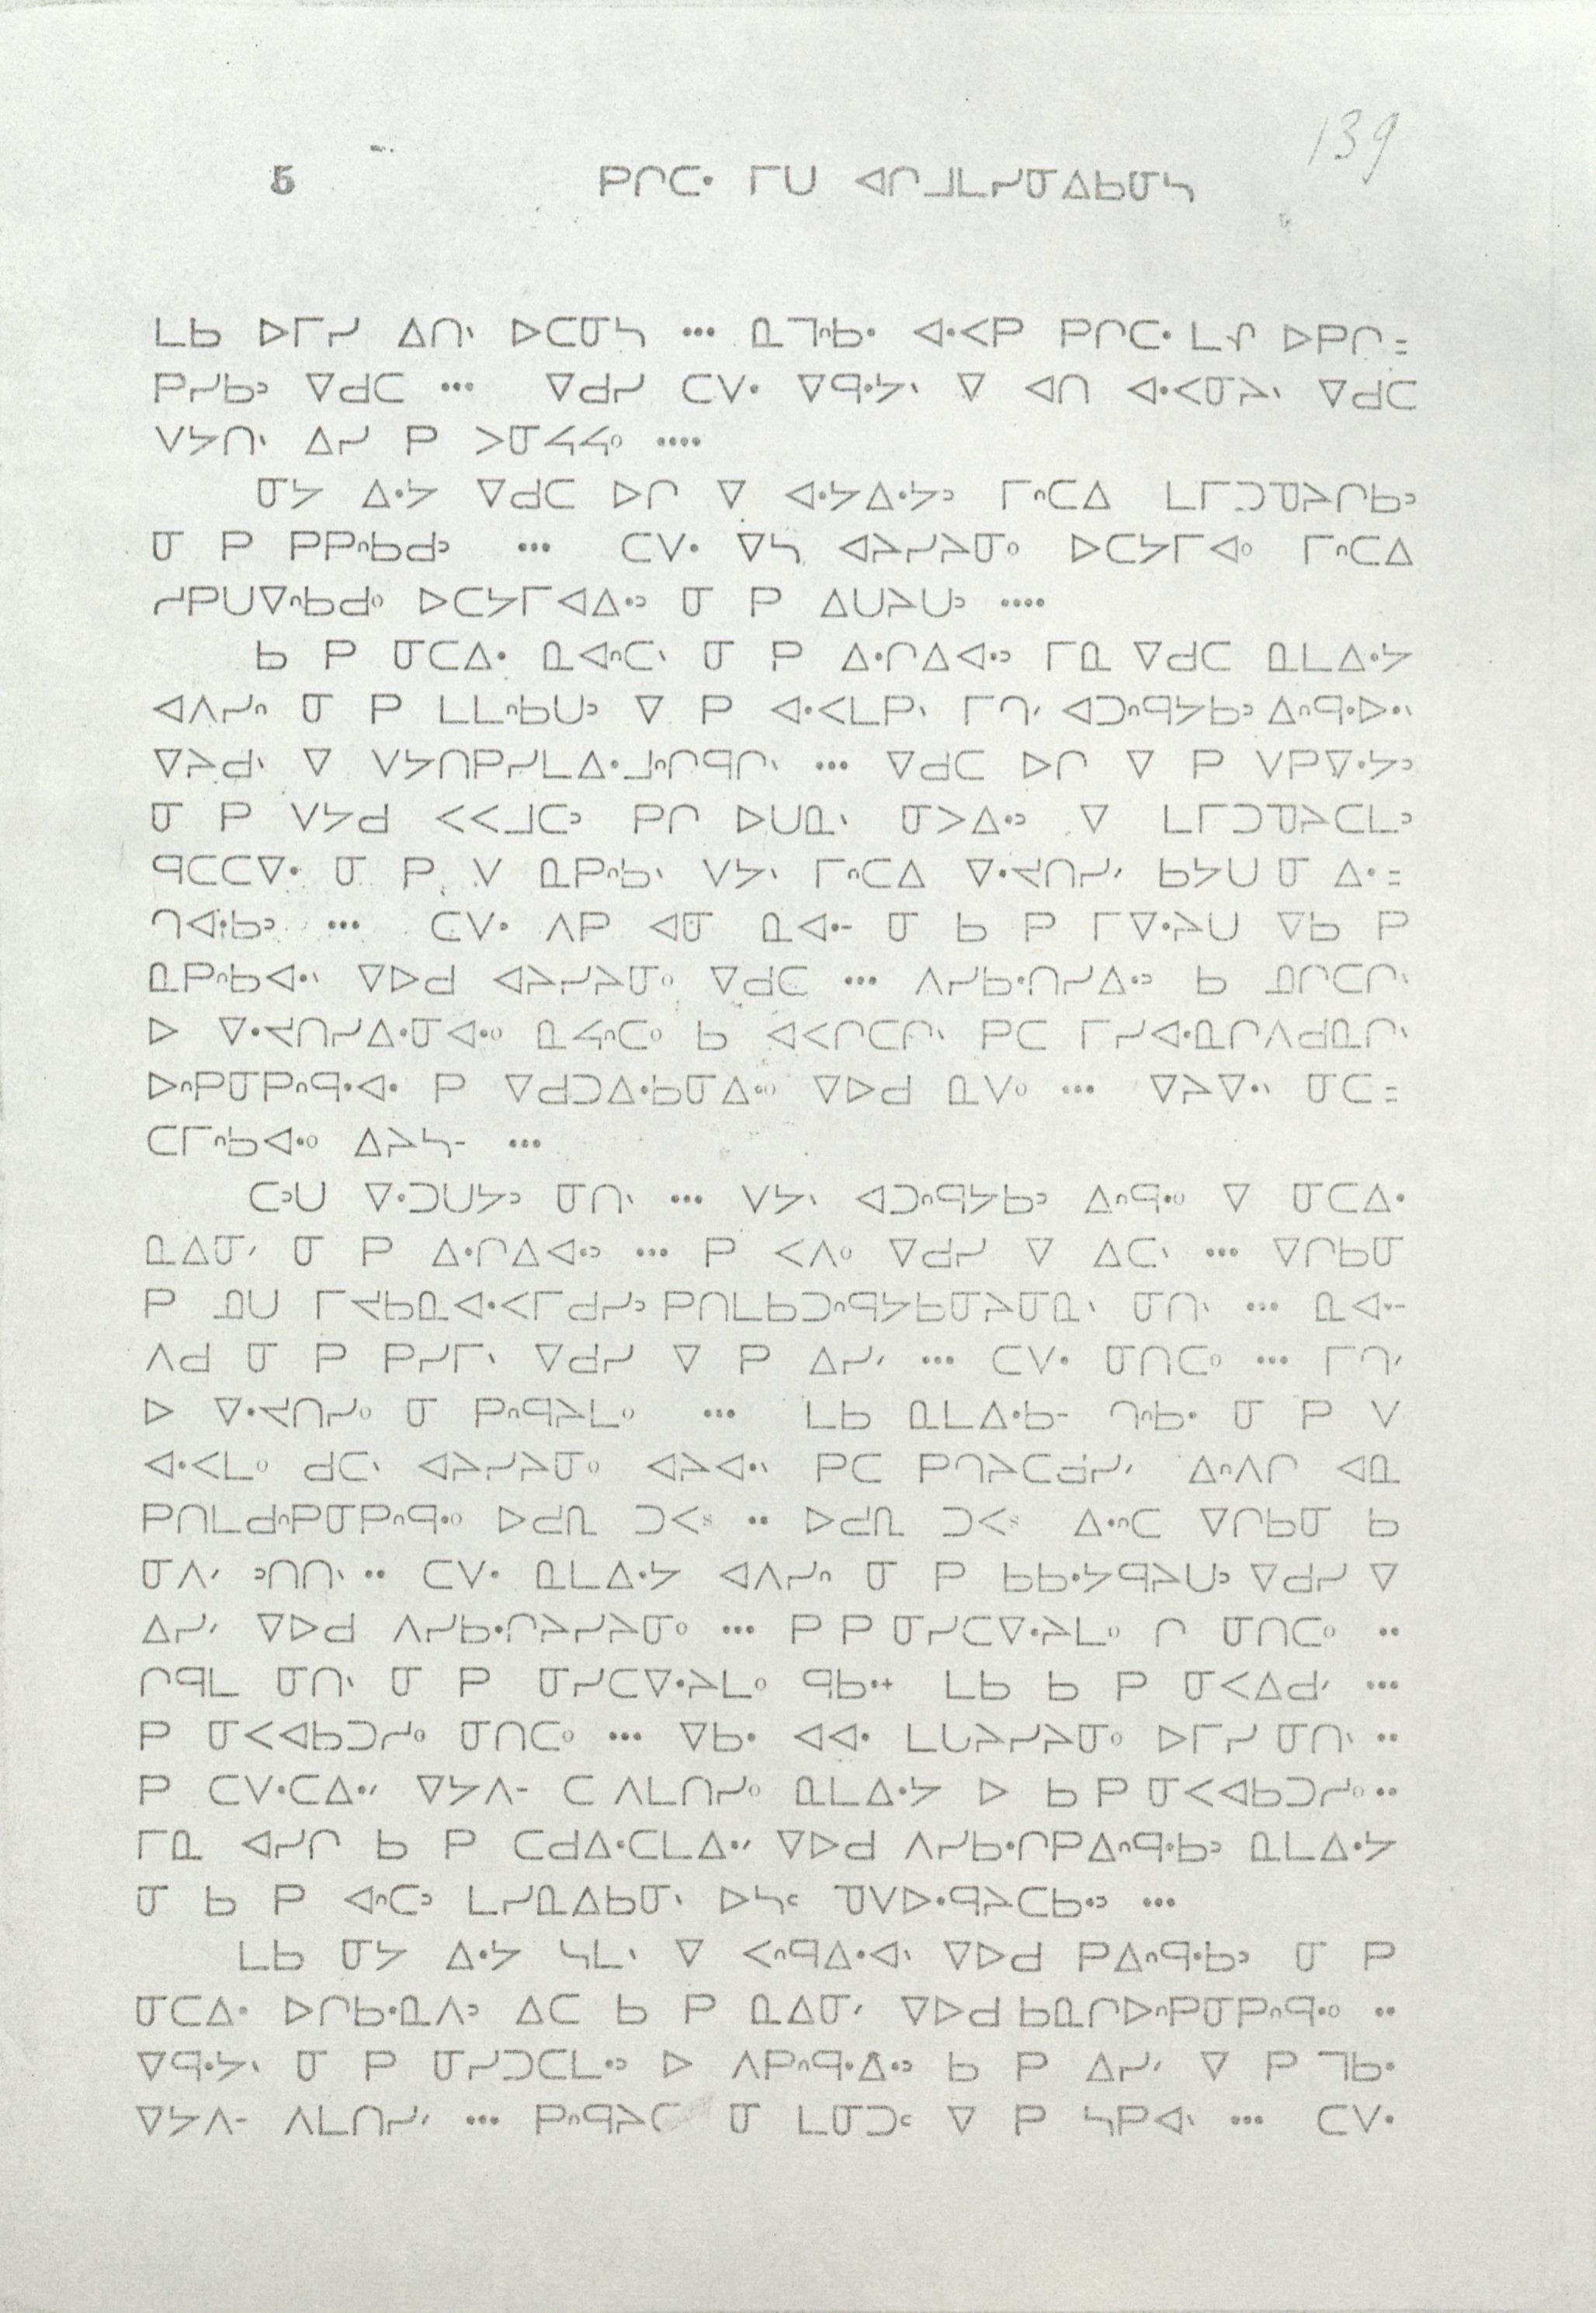 5 ᑭᒋᑕᐧ ᒥᑌ ᐊᒋᒧᒪᓯᓂᐃᑲᓂᓴ 139
ᒪᑲ ᐅᒥᓯ ᐃᑎᐠ ᐅᑕᓂᓴ ••• ᓇ ᒣᐢᑲᐧ ᐊᐧᐸᑭ ᑭᒋᑕᐧ ᒪᕆ ᐅᑭᒋ=
ᑭᓯᑲᐣ ᐁᑯᑕ ••• ᐁᑯᓯ ᑕᐯᐧ ᐁᑫᐧᔭᐠ ᐁ ᐊᑎ ᐊᐧᐸᓂᔨᐠ ᐁᑯᑕ
ᐯᔭᑎᐠ ᐃᓯ ᑭ ᐳᓂᔦᔦᐤ ••••
ᓂᔭ ᐃᐧᔭ ᐁᑯᑕ ᐅᒋ ᐁ ᐊᐧᔭᐃᐧᔭᐣ ᒥᐢᑕᐃ ᒪᒥᑐᓀᔨᒋᑲᐣ
ᓂ ᑭ ᑭᑭᐢᑲᑯᐣ ••• ᑕᐯᐧ ᐁᓴ ᐊᔨᓯᔨᓂᐤ ᐅᑕᔭᒥᐊᐤ ᒥᐢᑕᐃ
ᓱᑭᑌᐁᐢᑲᑯᐤ ᐅᑕᔭᒥᐊᐃᐧᐣ ᓂ ᑭ ᐃᑌᔨᑌᐣ ••••
ᑲ ᑭ ᓂᑕᐃᐧ ᓇᐊᐢᑕᐠ ᓂ ᑭ ᐃᐧᒋᐃᐊᐧᐣ ᒥᓇ ᐁᑯᑕ ᓇᒪᐃᐧᔭ
ᐊᐱᓯᐢ ᓂ ᑭ ᒪᒪᐢᑲᑌᐣ ᐁ ᑭ ᐊᐧᐸᒪᑭᐠ ᒥᒉᐟ ᐊᑐᐢᑫᔭᑲᐣ ᐃᐢᑫᐧᐅᐧᐠ
ᐁᔨᑯᐠ ᐁ ᐯᔭᑎᑭᓯᒪᐃᐧᒧᐢᒋᑫᒋᐠ ••• ᐁᑯᑕ ᐅᒋ ᐁ ᑭ ᐯᑭᐁᐧᔭᐣ
ᓂ ᑭ ᐯᔭᑯ ᐸᐸᒧᑕᐣ ᑭᒋ ᐅᑌᓇᐠ ᓂᐳᐃᐧᐣ ᐁ ᒪᒥᑐᓀᔨᑕᒪᐣ
ᑫᑕᑕᐁᐧ ᓂ ᑭ ᐯ ᓇᑭᐢᑲᐠ ᐯᔭᐠ ᒥᐢᑕᐃ ᐁᐧᔪᑎᓯᐟ ᑲᔭᑌ ᓂ ᐃᐧ=
ᒉᐊᐧᑲᐣ ••• ᑕᐯᐧ ᐱᑭ ᐊᓂ ᓇᐊᐧᐨ ᓂ ᑲ ᑭ ᒥᐁᐧᔨᑌ ᐁᑲ ᑭ
ᓇᑭᐢᑲᐊᐧᐠ ᐁᐅᑯ ᐊᔨᓯᔨᓂᐤ ᐁᑯᑕ ••• ᐱᓯᑲᐧᑎᓯᐃᐧᐣ ᑲ ᓄᒋᑕᒋᐠ
ᐅ ᐁᐧᔪᑎᓯᐃᐧᓂᐊᐧᐤ ᓇᔦᐢᑕᐤ ᑲ ᐊᐸᒋᑕᒋᐠ ᑭᑕ ᒥᓯᐊᐧᓇᒋᐱᑯᓇᒋᐠ
ᐅᐢᑭᓂᑭᐢᑫᐧᐊᐧ ᑭ ᐁᑯᑐᐃᐧᑲᓂᐃᐧᐤ ᐁᐅᑯ ᓇᐯᐤ ••• ᐁᔨᐁᐧᐠ ᓂᑕ=
ᑕᒥᐢᑲᐊᐧᐤ ᐃᔨᓴᐨ •••
ᑕᐣᑌ ᐁᐧᑐᑌᔭᐣ ᓂᑎᐠ ••• ᐯᔭᐠ ᐊᑐᐢᑫᔭᑲᐣ ᐃᐢᑫᐧᐤ ᐁ ᓂᑕᐃᐧ
ᓇᐃᓂᐟ ᓂ ᑭ ᐃᐧᒋᐃᐊᐧᐣ ••• ᑭ ᐸᐱᐤ ᐁᑯᓯ ᐁ ᐃᑕᐠ ••• ᐁᒋᑲᓂ
ᑭ ᓄᑌ ᒥᔪᑲᓇᐊᐧᐸᒥᑯᓯᐣ ᑭᑎᒪᑲᑐᐢᑫᔭᑲᓂᔨᓂᓇᐠ ᓂᑎᐠ ••• ᓇᐊᐧᐨ
ᐱᑯ ᓂ ᑭ ᑭᓯᒥᐠ ᐁᑯᓯ ᐁ ᑭ ᐃᓯᐟ ••• ᑕᐯᐧ ᓂᑎᑕᐤ ••• ᒥᒉᐟ
ᐅ ᐁᐧᔪᑎᓯᐤ ᓂ ᑭᐢᑫᔨᒪᐤ ••• ᒪᑲ ᓇᒪᐃᐧᑲᐨ ᒉᐢᑲᐧ ᓂ ᑭ ᐯ
ᐊᐧᐸᒪᐤ ᑯᑕᐠ ᐊᔨᓯᔨᓂᐤ ᐊᔨᐊᐧᐠ ᑭᑕ ᑭᒉᔨᑕᑯᓯᐟ ᐃᐢᐱᒋ ᐊᓇ
ᑭᑎᒪᑯᐢᑭᓂᑭᐢᑫᐧᐤ ᐅᑯᓇ ᑐᐸˢ •• ᐅᑯᓇ ᑐᐸˢ ᐃᐧᐢᑕ ᐁᒋᑲᓂ ᑲ
ᓂᐱᐟ ᐣᑎᑎᐠ •• ᑕᐯᐧ ᓇᒪᐃᐧᔭ ᐊᐱᓯᐢ ᓂ ᑭ ᑲᑲᐧᔭᑫᔨᑌᐣ ᐁᑯᓯ ᐁ
ᐃᓯᐟ ᐁᐅᑯ ᐱᓯᑲᐧᒋᔨᓯᔨᓂᐤ ••• ᑭ ᑭ ᓂᓯᑕᐁᐧᔨᒪᐤ ᒋ ᓂᑎᑕᐤ ••
ᒋᑫᒪ ᓂᑎᐠ ᓂ ᑭ ᓂᓯᑕᐁᐧᔨᒪᐤ ᑫᑲᐧᐩ ᒪᑲ ᑲ ᑭ ᓂᐸᐃᑯᐟ •••
ᑭ ᓂᐸᐊᑲᑐᓱᐤ ᓂᑎᑕᐤ ••• ᐁᑲᐧ ᐊᐊᐧ ᒪᒐᔨᓯᔨᓂᐤ ᐅᒥᓯ ᓂᑎᐠ ••
ᑭ ᑕᐯᐧᑕᐃᐧᐟ ᐁᔭᐱᐨ ᑕ ᐱᒪᑎᓯᐤ ᓇᒪᐃᐧᔭ ᐅ ᑲ ᑭ ᓂᐸᐊᑲᑐᓱᐤ ••
ᒥᓇ ᐊᓯᒋ ᑲ ᑭ ᑕᑯᐃᐧᑕᒪᐃᐧᐟ ᐁᐅᑯ ᐱᓯᑲᐧᒋᑭᐃᐢᑫᐧᑲᐣ ᓇᒪᐃᐧᔭ
ᓂ ᑲ ᑭ ᐊᐢᑕᐣ ᒪᓯᓇᐃᑲᓂᐠ ᐅᓴᒼ ᓀᐯᐅᐧᑫᔨᑕᑲᐧᐣ •••
ᒪᑲ ᓂᔭ ᐃᐧᔭ ᓴᒪᐠ ᐁ ᐸᐢᑫᐃᐧᐊᐠ ᐁᐅᑯ ᑭᐃᐢᑫᐧᑲᐣ ᓂ ᑭ
ᓂᑕᐃᐧ ᐅᒋᑲᐧᓇᐱᐣ ᐃᑕ ᑲ ᑭ ᓇᐃᓂᐟ ᐁᐅᑯ ᑲᓇᒋᐅᐢᑭᓂᑭᐢᑫᐧᐤ ••
ᐁᑫᐧᔭᐠ ᓂ ᑭ ᓂᓯᑐᑕᒪᐧᐣ ᐅ ᐱᑭᐢᑫᐧᐃᐧᐣ ᑲ ᑭ ᐃᓯᐟ ᐁ ᑭ ᒣᑲᐧ
ᐁᔭᐱᐨ ᐱᒪᑎᓯᐟ ••• ᑭᐢᑫᔨᑕ ᓂ ᒪᓂᑐᒼ ᐁ ᑭ ᓴᑭᐊᐠ ••• ᑕᐯᐧ